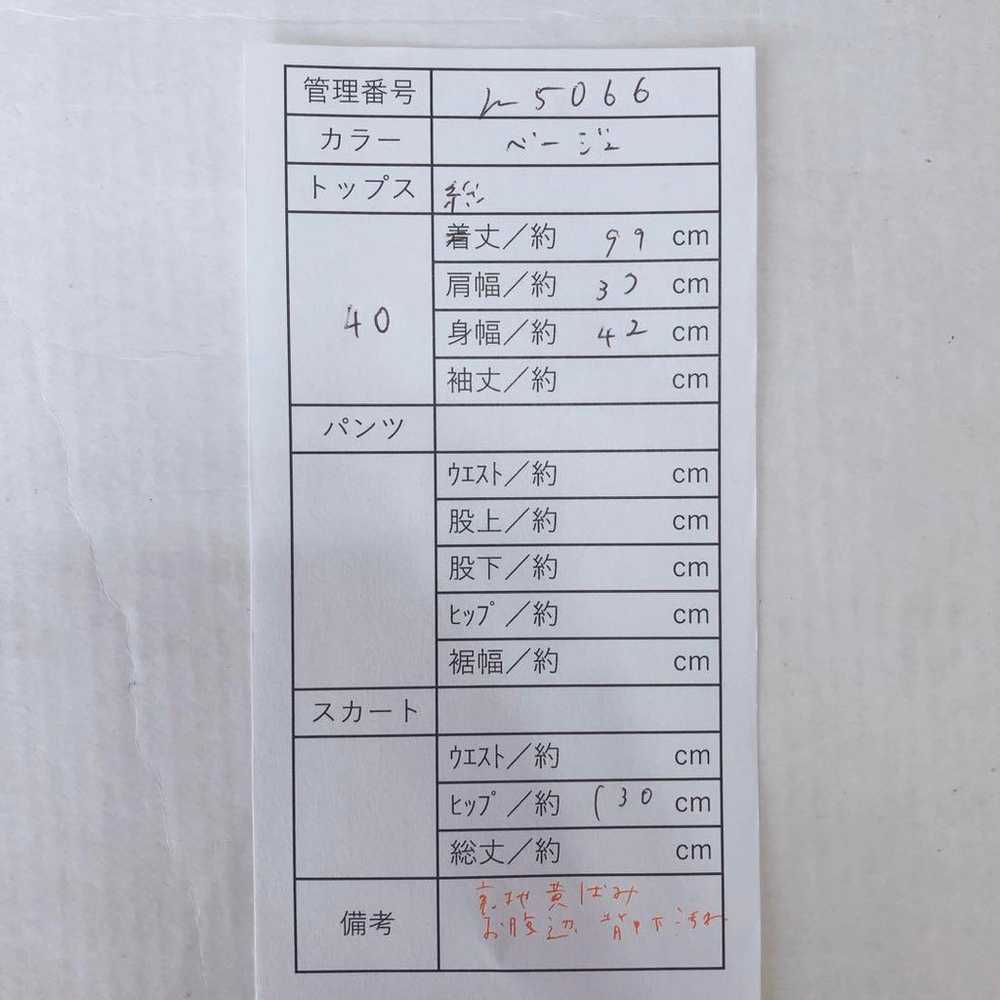 管理番号 5066
カラー ベージュ
トップス 総
着丈／約 99 cm
肩幅／約 37 cm
40
身幅／約 42 cm
袖丈／約 cm
パンツ
ウエスト／約 cm
股上／約 cm
股下／約 cm
ヒップ／約 cm
裾幅／約 cm
スカート
ウエスト／約 cm
ヒップ／約 130 cm
総丈／約 cm
裏地黄ばみ
備考
お腹辺 背中下汚れ